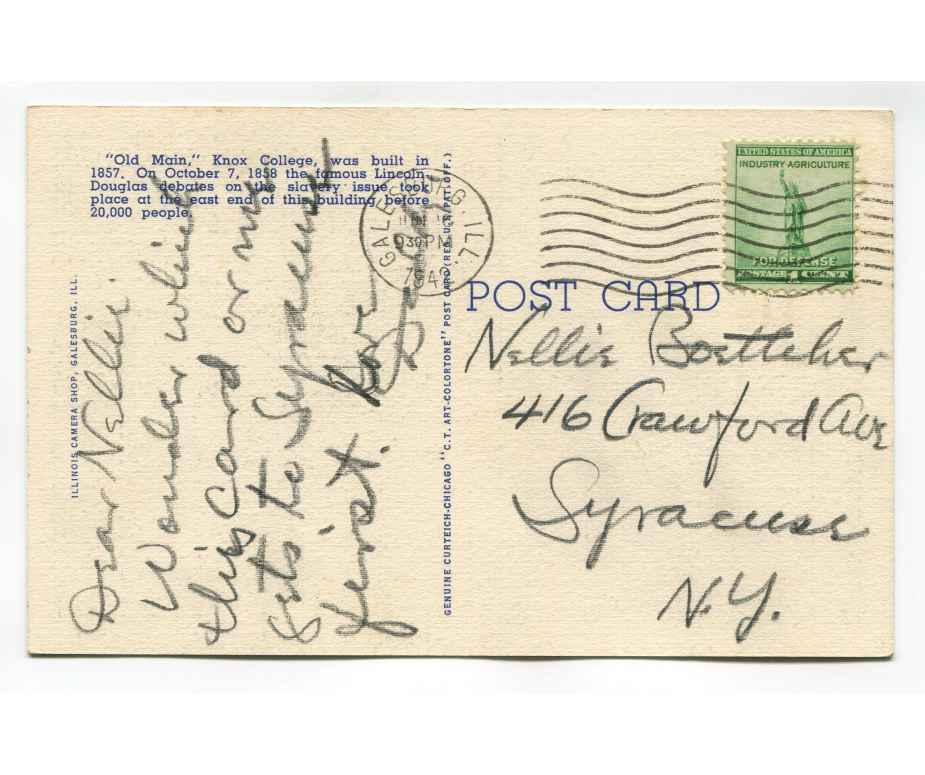 "Old Main," Knox College, was built in
1857. On October 7, 1858 the famous Lincoln
Douglas debates on the slavery issue took
place at the east end of this building before
20,000 people.
ILLINOIS CAMERA SHOP, GALESBURG, ILL.
Dear Nellie:
Wonder which
this card or me
gets to Syracuse
first. Love
GENUINE CURTEICH-CHICAGO "C.T. ART-COLORTONE" POST CARD (REG. U.S. PAT. OFF.)
GALESBURG, ILL.
930 PM
UNITED STATES OF AMERICA
INDUSTRY AGRICULTURE
FOR DEFENSE
POSTAGE 1 CENT
POST CARD
Nellie Boettcher
416 Crawford Ave
Syracuse
N.Y.